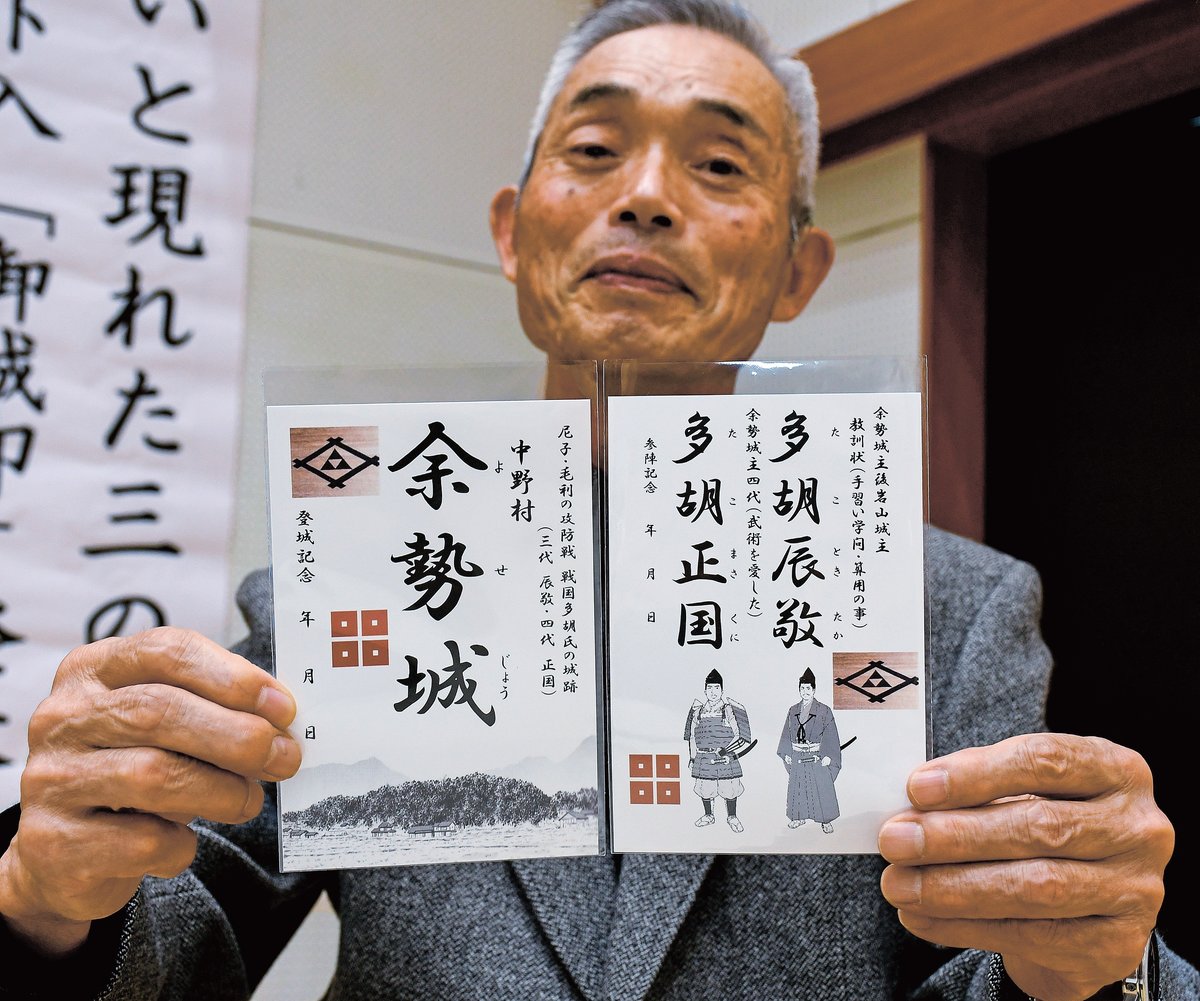 いと現れた三の
入「御城印
尼子・毛利の攻防戦 戦国多胡氏の城跡
(三代 辰敬・四代 正国)
中野村
余勢城
よせじょう
登城記念 年 月 日
余勢城主後岩山城主
教訓状(手習い学問・算用の事)
多胡辰敬
たこときたか
余勢城主四代(武術を愛した)
多胡正国
たこまさくに
参陣記念 年 月 日